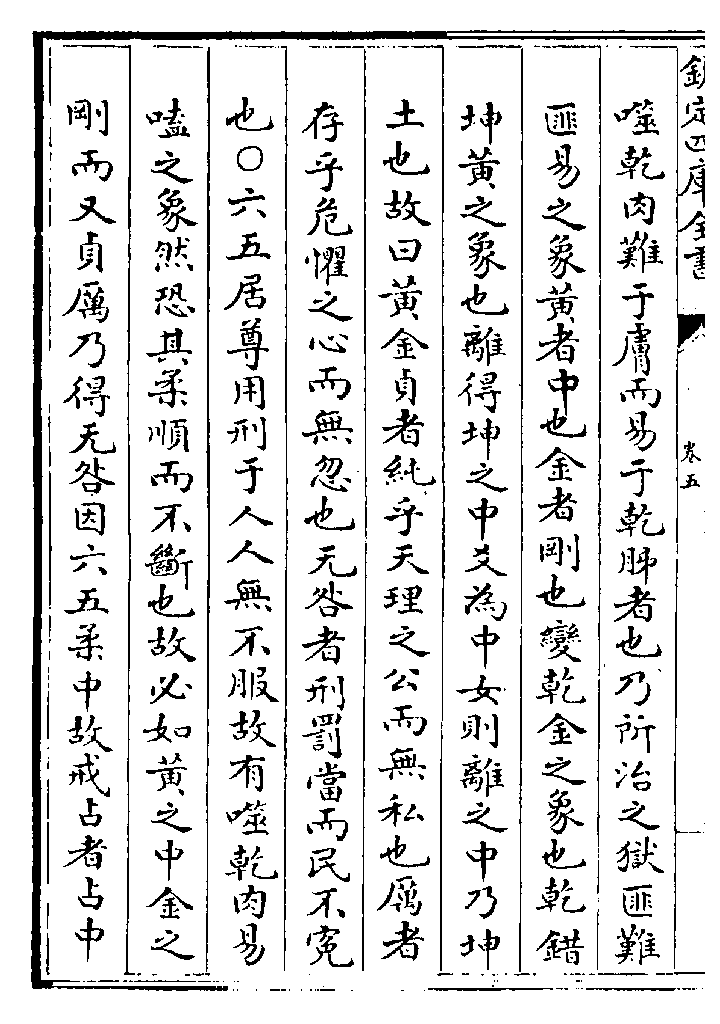 欽定四庫全書
卷五
噬乾肉難于膚而易于乾胏者也乃所治之獄匪難
匪易之象黄者中也金者剛也變乾金之象也乾錯
坤黄之象也離得坤之中爻為中女則離之中乃坤
土也故曰黄金貞者純乎天理之公而無私也厲者
存乎危懼之心而無忽也无咎者刑罰當而民不寃
也○六五居尊用刑于人人無不服故有噬乾肉易
嗑之象然恐其柔順而不斷也故必如黄之中金之
剛而又貞厲乃得无咎因六五柔中故戒占者占中